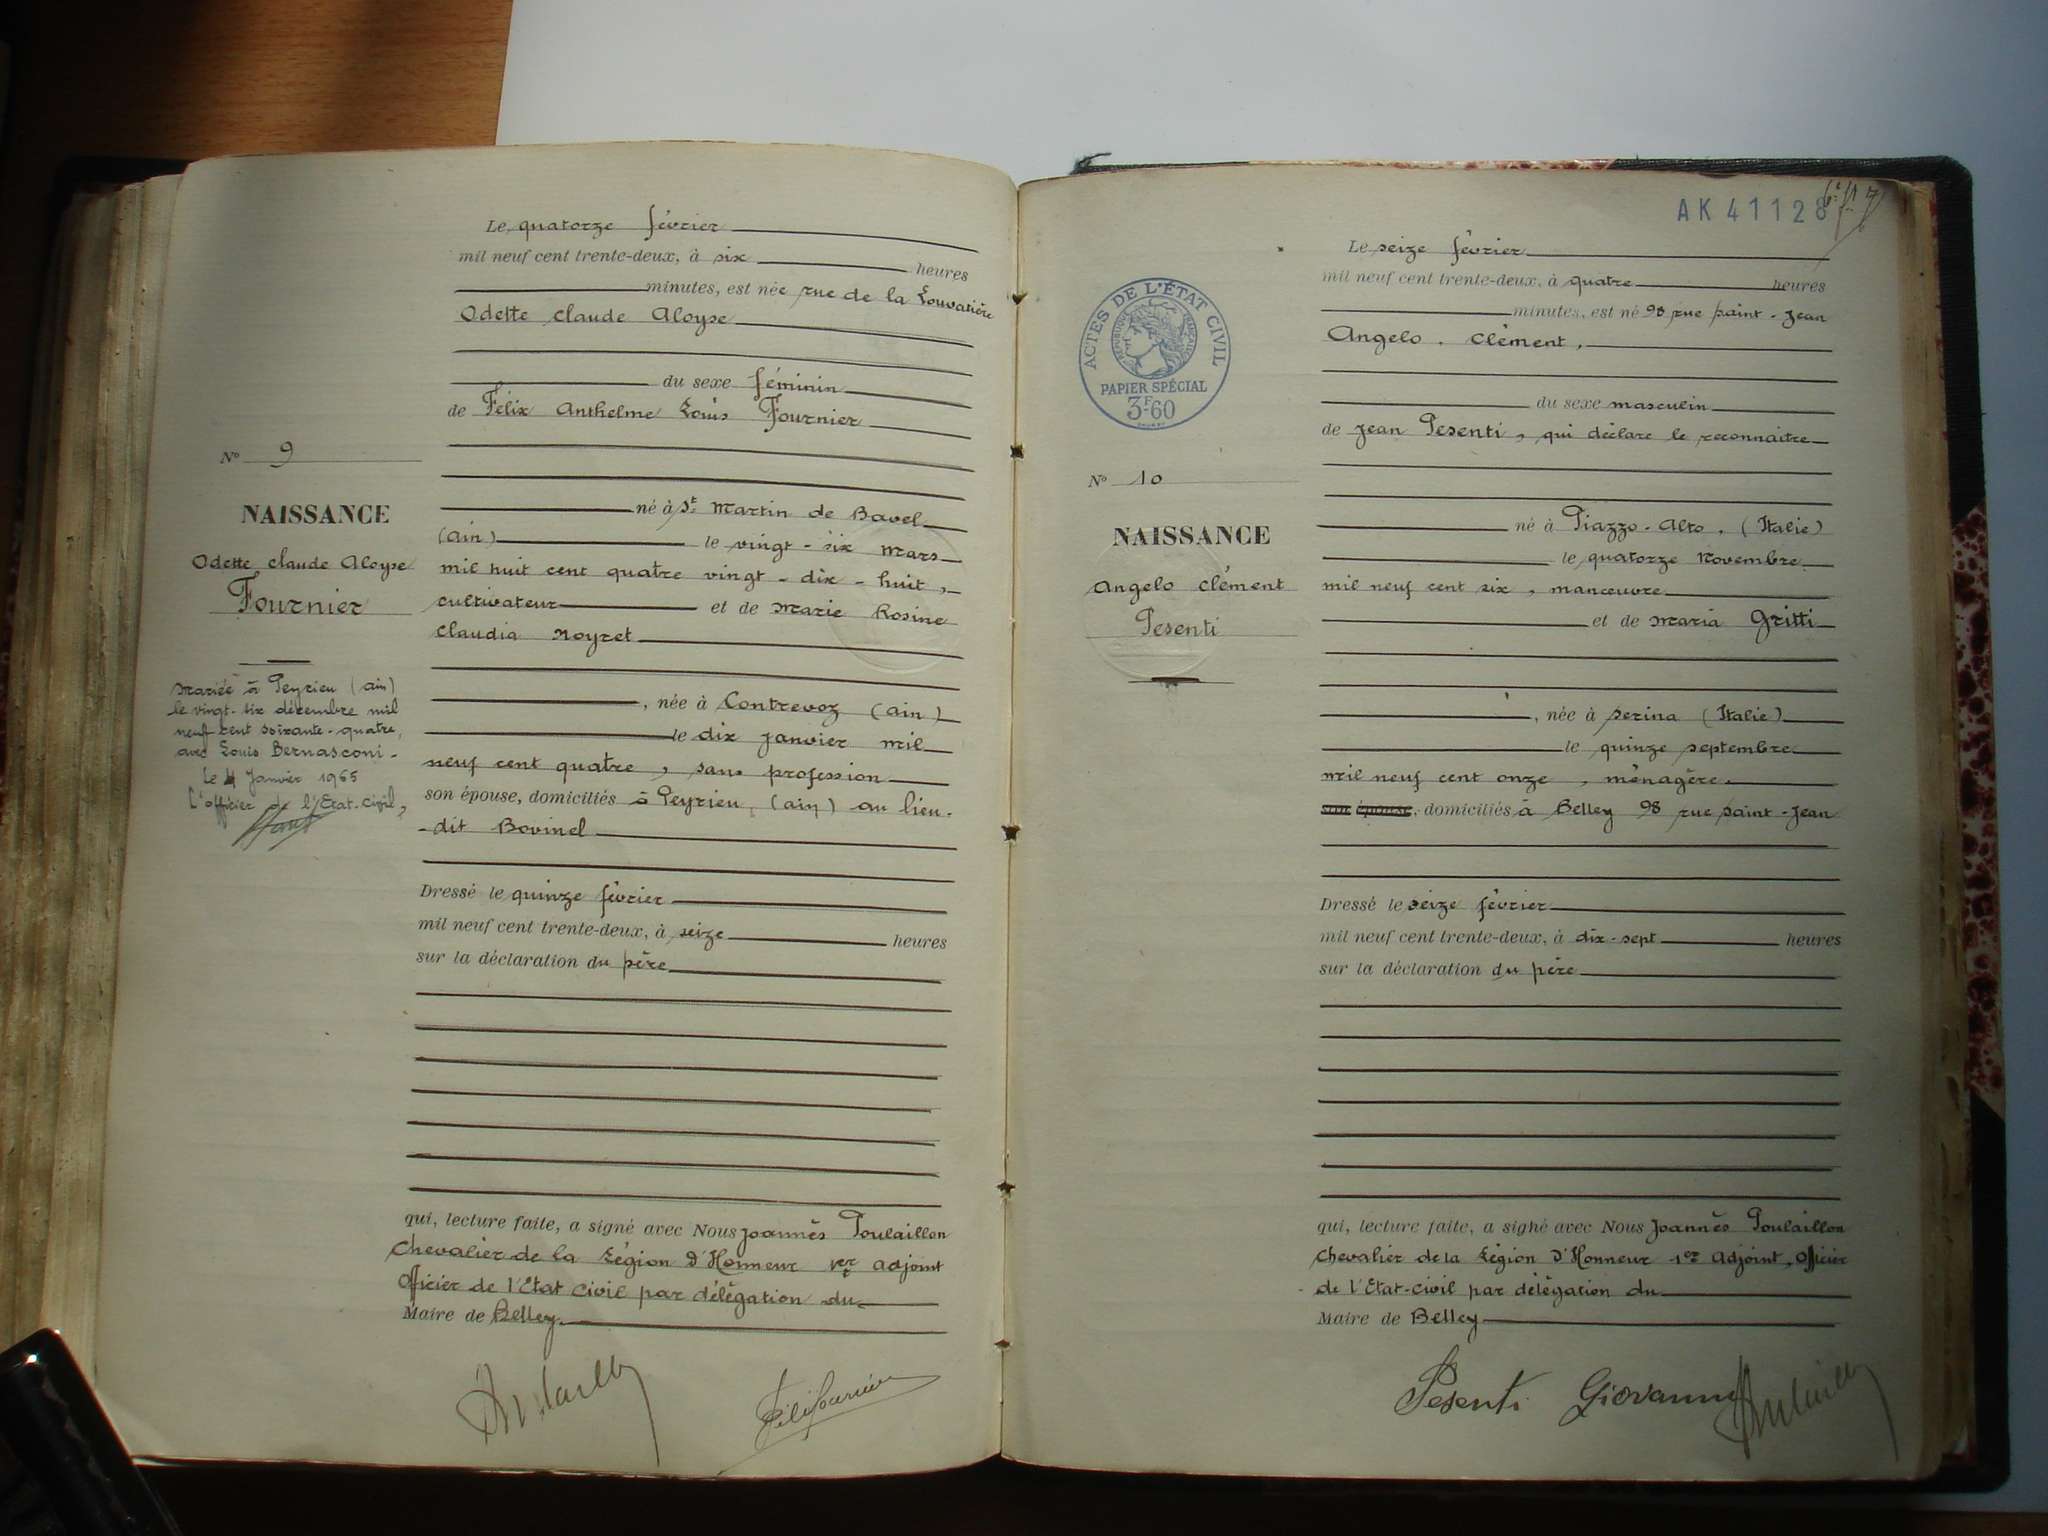 Le quatorze février
mil neuf cent trente-deux, à six heures
minutes, est née rue de la Louvatière
Odette Claude Aloyse
du sexe féminin
de Félix Anthelme Louis Fournier
né à St Martin de Bavel
(Ain) le vingt-six mars
mil huit cent quatre vingt-dix-huit,
cultivateur et de Marie Rosine
Claudia Noyret
, née à Contrevoz (Ain)
le dix janvier mil
neuf cent quatre, sans profession
son épouse, domiciliés à Peyrieu (Ain) au lieu-
-dit Bovinel
Dressé le quinze février
mil neuf cent trente-deux, à seize heures
sur la déclaration du père
qui, lecture faite, a signé avec Nous Joannès Poulaillon
Chevalier de la Légion d'Honneur 1er adjoint
Officier de l'Etat civil par délégation du
Maire de Belley
No 9
NAISSANCE
Odette Claude Aloyse
Fournier
Mariée à Peyrieu (Ain)
le vingt-six décembre mil
neuf cent soixante-quatre,
avec Louis Bernasconi-
le 4 Janvier 1965
L'officier de l'Etat-Civil,
AK 41128
Le seize février
mil neuf cent trente-deux, à quatre heures
minutes, est né 98 rue Saint-Jean
Angelo. Clément,
du sexe masculin
de Jean Pesenti, qui déclare le reconnaitre
né à Piazzo-Alto. (Italie)
le quatorze Novembre
mil neuf cent six, manœuvre
et de Maria Gritti
, née à Serina (Italie)
le quinze septembre
mil neuf cent onze, ménagère.
son épouse, domiciliés à Belley 98 rue Saint-Jean
Dressé le seize février
mil neuf cent trente-deux, à dix-sept heures
sur la déclaration du père
qui, lecture faite, a signé avec Nous Joannès Poulaillon
Chevalier de la Légion d'Honneur 1er adjoint, Officier
de l'Etat-civil par délégation du
Maire de Belley
Pesenti Giovanni
ACTES DE L'ÉTAT CIVIL
RÉPUBLIQUE FRANÇAISE
PAPIER SPÉCIAL
3F60
No 10
NAISSANCE
Angelo Clément
Pesenti